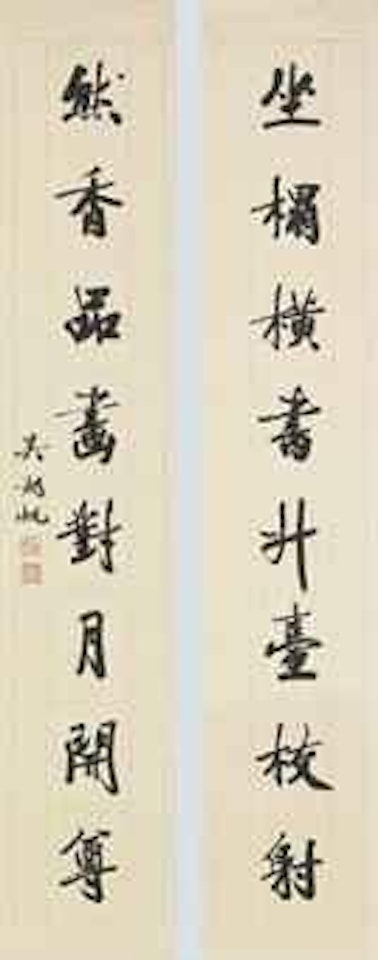 坐榻橫書升臺校射
然香品畫對月開尊
吳湖帆